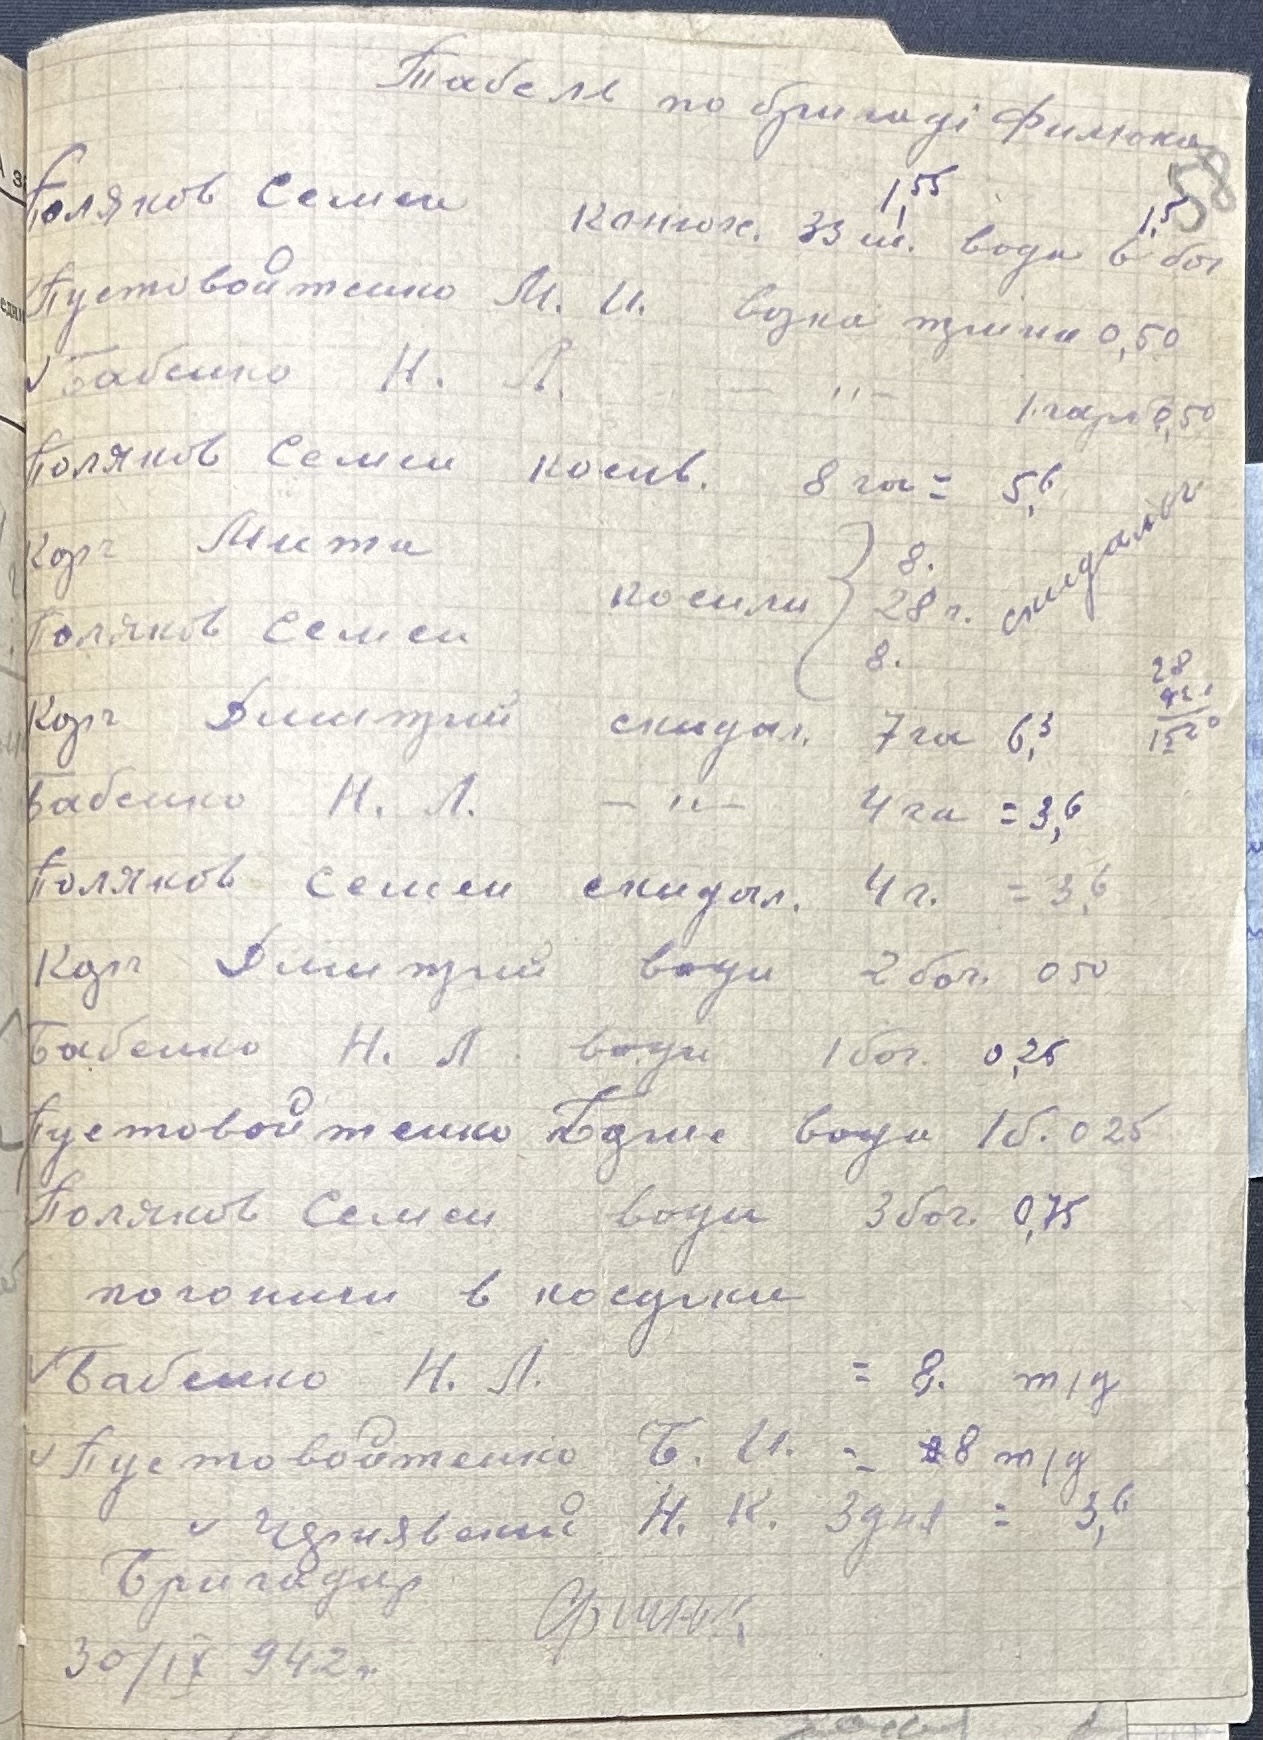 Табель по бригаді Филюка
58
Поляков Семен конюх. 33 ш. 1,55 води 6 боч 1,5
Пустовойтенко М. И. возка зрина 0,50
Бабенко Н. Л. — " — 1 гарб 0,50
Поляков Семен косив. 8 га = 5,6
Корч Митя 8.
косили 28 г. скидальщ
Поляков Семен 8.
28
Корч Дмитрий скидал. 7 га 6,3
Бабенко Н. Л. — " — 4 га = 3,6
Поляков Семен скидал. 4 г. = 3,6
Корч Дмитрий води 2 боч. 0 50
Бабенко Н. Л. води 1 боч. 0,25
Пустовойтенко води 1 б. 0 25
Поляков Семен води 3 боч. 0,75
погоничи в косулки
Бабенко Н. Л. = 8. т/д
Пустовойтенко Б. И. = 8 т/д
Чернявский Н. К. 3 дня = 3,6
Бригадир Филюк
30/IX 942 г.